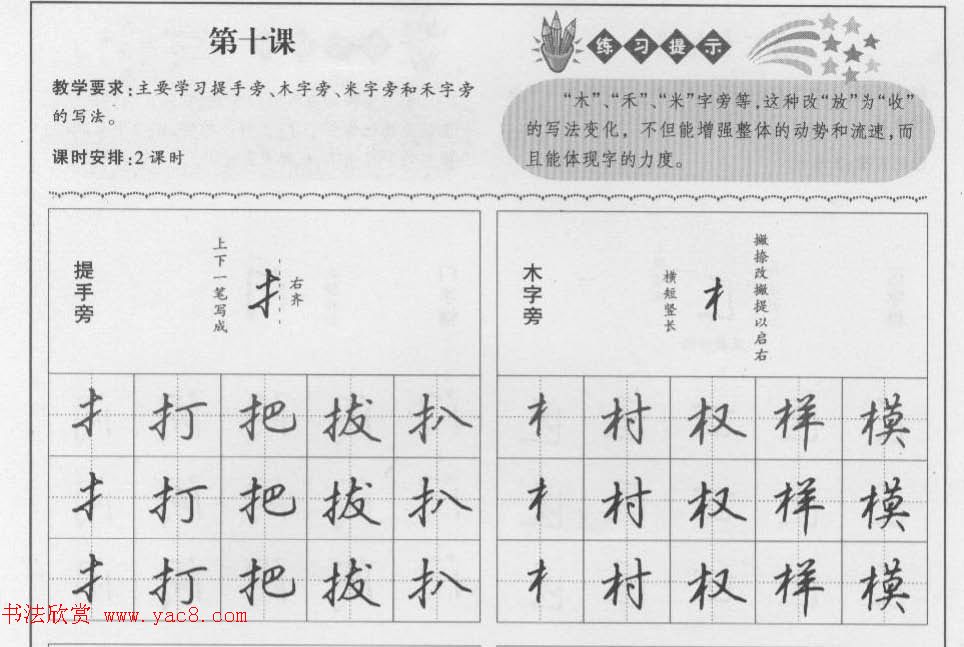 第十课
教学要求:主要学习提手旁、木字旁、米字旁和禾字旁
的写法。
课时安排:2课时
练习提示
“木”、“禾”、“米”字旁等,这种改“放”为“收”
的写法变化,不但能增强整体的动势和流速,而
且能体现字的力度。
提手旁
上下一笔写成
扌
右齐
扌打把拔扒
扌打把拔扒
扌打把拔扒
木字旁
横短竖长
木
撇捺改撇提以启右
木村权样模
木村权样模
木村权样模
书法欣赏 www.yac8.com